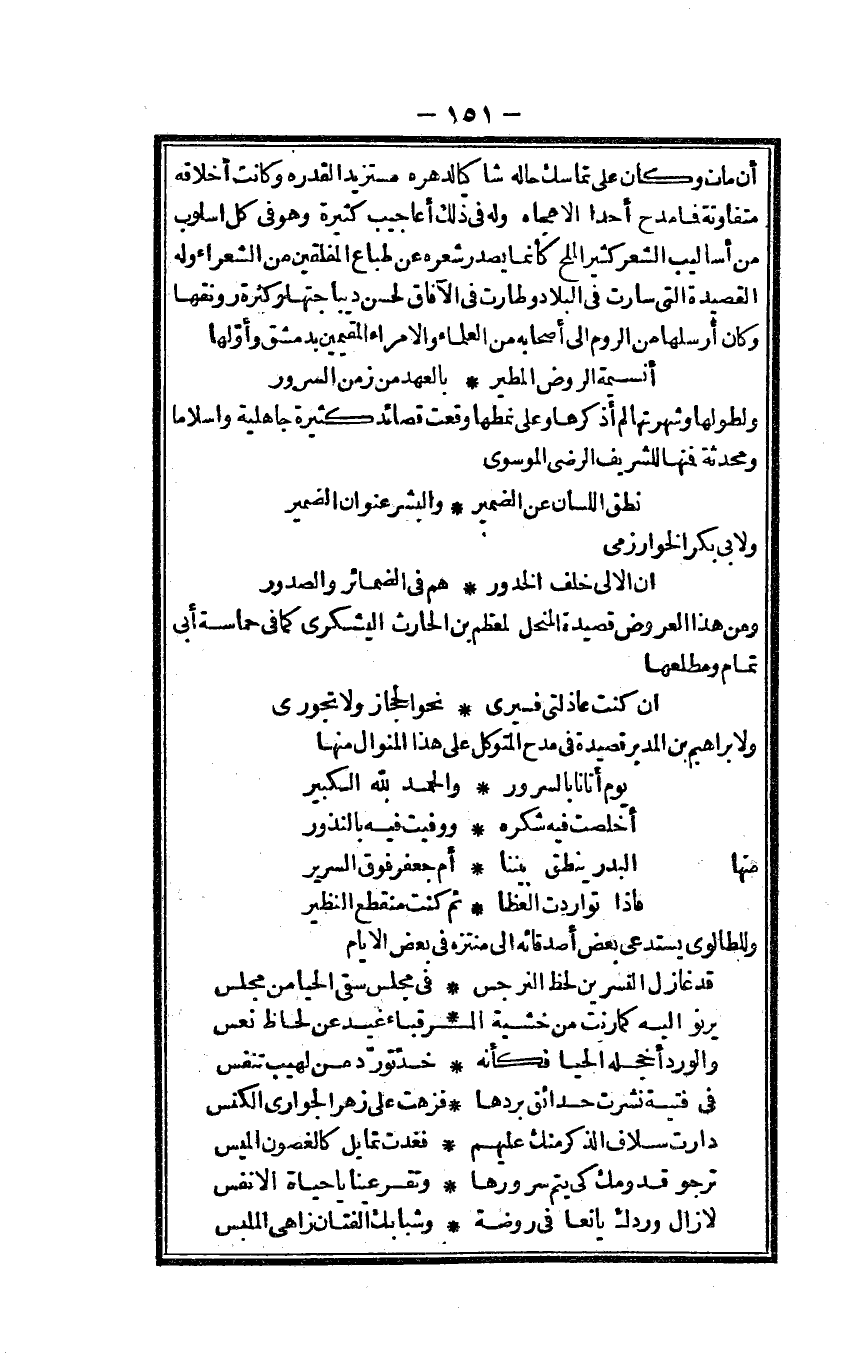 — ١٥١ —
أن مات وكان على تماسك حاله شاكيا لدهره مستزيدا لقدره وكانت أخلاقه
متفاوتة فما مدح أحدا الا هجاه وله فى ذلك أعاجيب كثيرة وهو فى كل اسلوب
من أساليب الشعر كثير الملح كأنما يصدر شعره عن طباع المفلقين من الشعراء وله
القصيدة التى سارت فى البلاد وطارت فى الآفاق لحسن ديباجتها وكثرة رونقها
وكان أرسلها من الروم الى أصحابه من العلماء والامراء المقيمين بدمشق وأولها
أنسيمة الروض المطير * بالعهد من زمن السرور
ولطولها وشهرتها لم أذكرها وعلى نمطها وقعت قصائد كثيرة جاهلية واسلاما
ومحدثة فمنها للشريف الرضى الموسوى
نطق اللسان عن الضمير * والبشر عنوان الضمير
ولابى بكر الخوارزمى
ان الالى خلف الخدور * هم فى الضمائر والصدور
ومن هذا العروض قصيدة المنخل لمعظم بن الحارث اليشكرى كما فى حماسة أبى
تمام ومطلعها
ان كنت عاذلتى فسيرى * نحو الحجاز ولا تجورى
ولابراهيم بن المدبر قصيدة فى مدح المتوكل على هذا المنوال منها
يوم أتانا بالسرور * والحمد لله الكبير
أخلصت فيه شكره * ووفيت فيه بالنذور
منها البدر ينطق بيننا * أم جعفر فوق السرير
فاذا تواردت العظا * ثم كنت منقطع النظير
وللطالوى يستدعى بعض أصدقائه الى منتزه فى بعض الايام
قد غازل النسرين لحظ النرجس * فى مجلس سقى الحيا من مجلس
يرنو اليه كما رنت من خشية الـ * ـرقباء غيد عن لحاظ نعس
والورد أخجله الحيا فكأنه * خد تورد من لهيب تنفس
فى فتية نشرت حدائق بردها * فزهت على زهر الجوارى الكنس
دارت سلاف الذكر منك عليهم * فغدت تمايل كالغصون الميس
ترجو قدومك كى يتم سرورها * وتقر عينا ياحياة الانفس
لازال وردك يانعا فى روضة * وشبابك الفتان زاهى الملبس